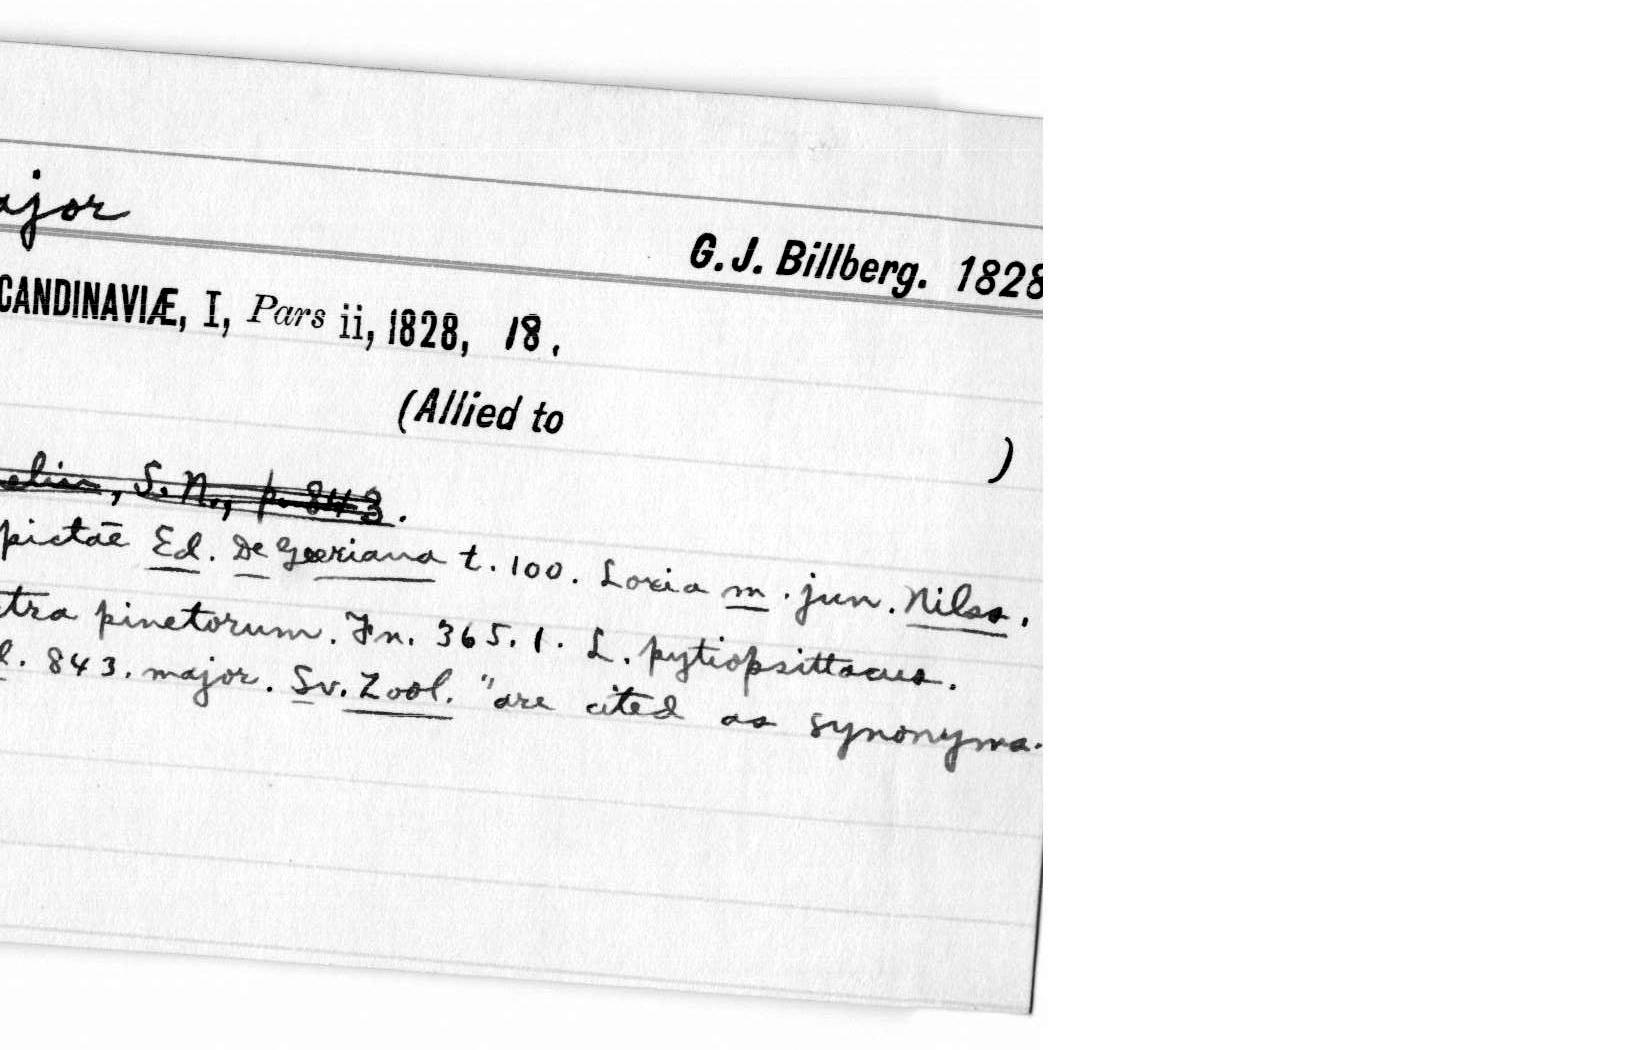 ajor
G. J. Billberg. 1828
CANDINAVIÆ, I, Pars ii, 1828, 18.
(Allied to )
elin, S. N., p. 843.
pictāē Ed. De Geeriana t. 100. Loxia m. jun. Nilss.
tra pinetorum. Fn. 365. 1. L. pytiopsittacus.
l. 843. major. Sv. Zool. "are cited as synonyma.